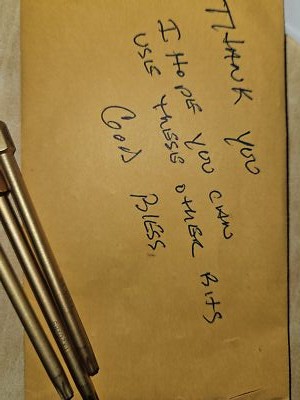 THANK YOU
I HOPE YOU CAN
USE THESSE OTHER BITS
GOD BLESS,